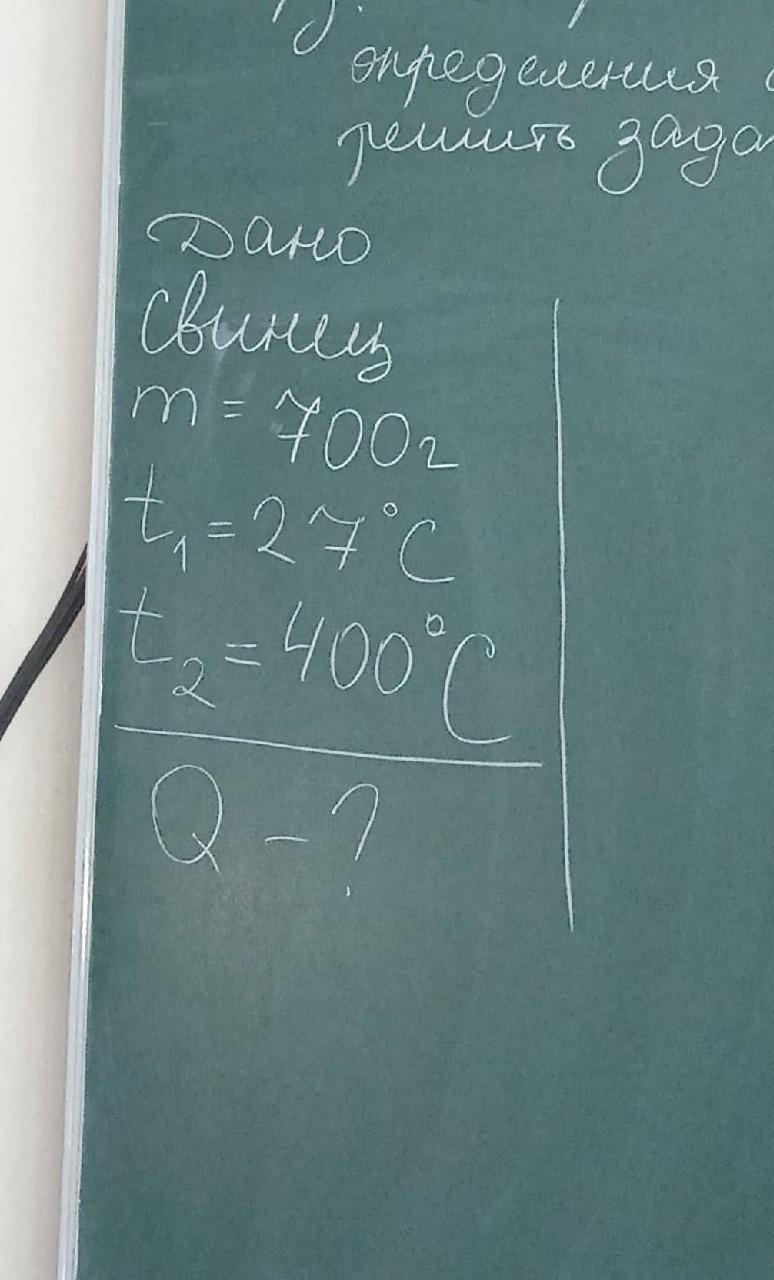 определения
решить
Дано
свинец
m = 700г
t₁ = 27°C
t₂ = 400°C
Q - ?